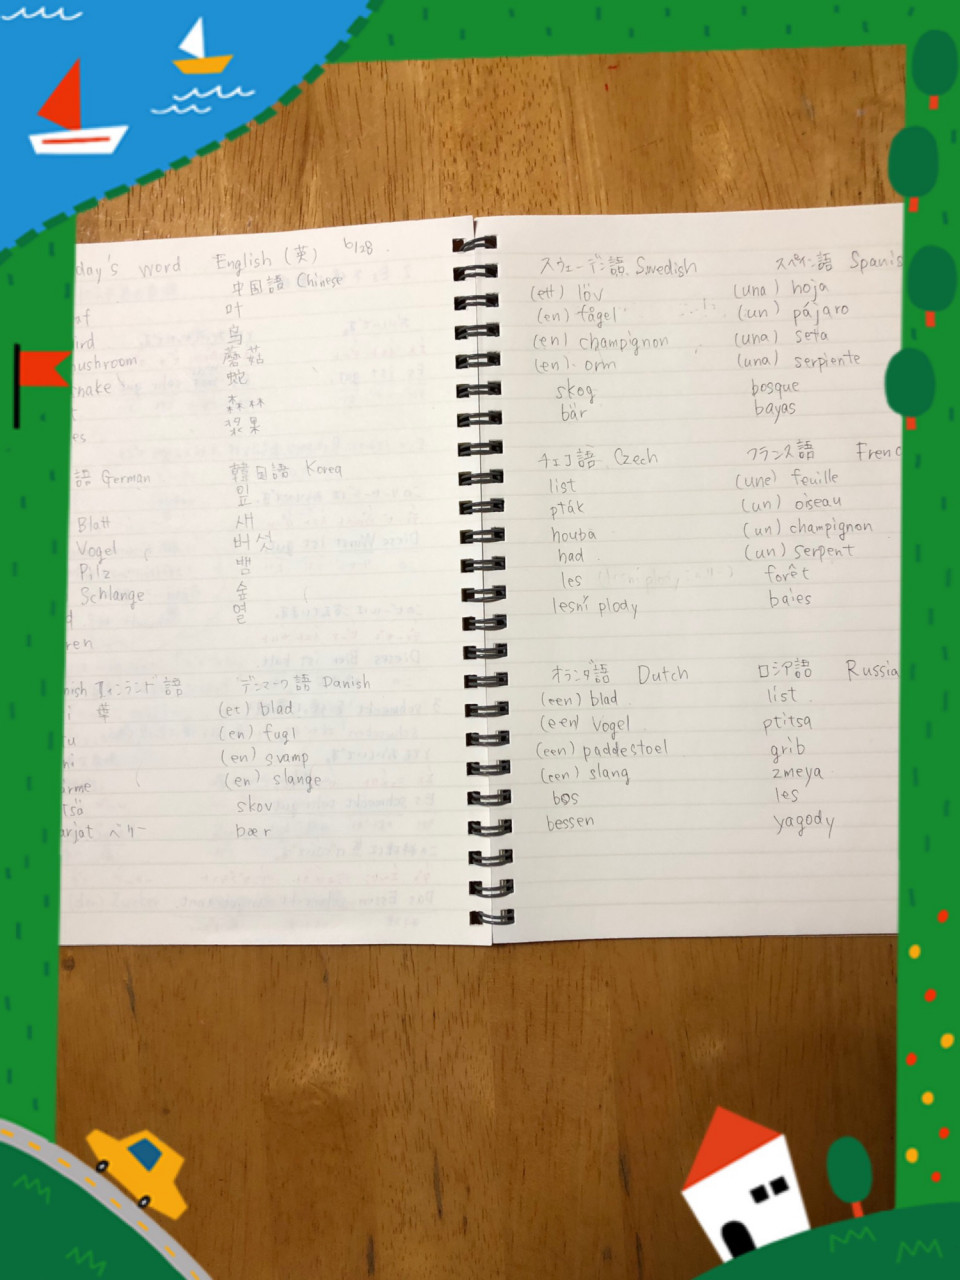 day's word English (英) 6/28.
中国語 Chinese
叶
鸟
mushroom 蘑菇
snake 蛇
森林
浆果
語 German
韓国語 Korea
잎
Blatt 새
Vogel 버섯
Pilz 뱀
Schlange 숲
열
フィンランド語
デンマーク語 Danish
葉 (et) blad
(en) fugl
(en) svamp
(en) slange
skov
ベリー bær
スウェーデン語 Swedish
(ett) löv
(en) fågel
(en) champignon
(en) orm
skog
bär
スペイン語 Spanis
(una) hoja
(un) pájaro
(una) seta
(una) serpiente
bosque
bayas
チェコ語 Czech
list
pták
houba
had
les
lesní plody
フランス語 Frenc
(une) feuille
(un) oiseau
(un) champignon
(un) serpent
forêt
baies
オランダ語 Dutch
(een) blad
(een) vogel
(een) paddestoel
(een) slang
bos
bessen
ロシア語 Russia
list
ptitsa
grib
zmeya
les
yagody